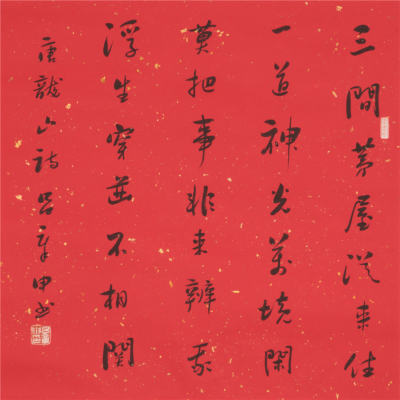 三間茅屋從來住
一道神光萬境閑
莫把事非來辨我
浮生穿鑿不相關
唐龍山詩呂章申書